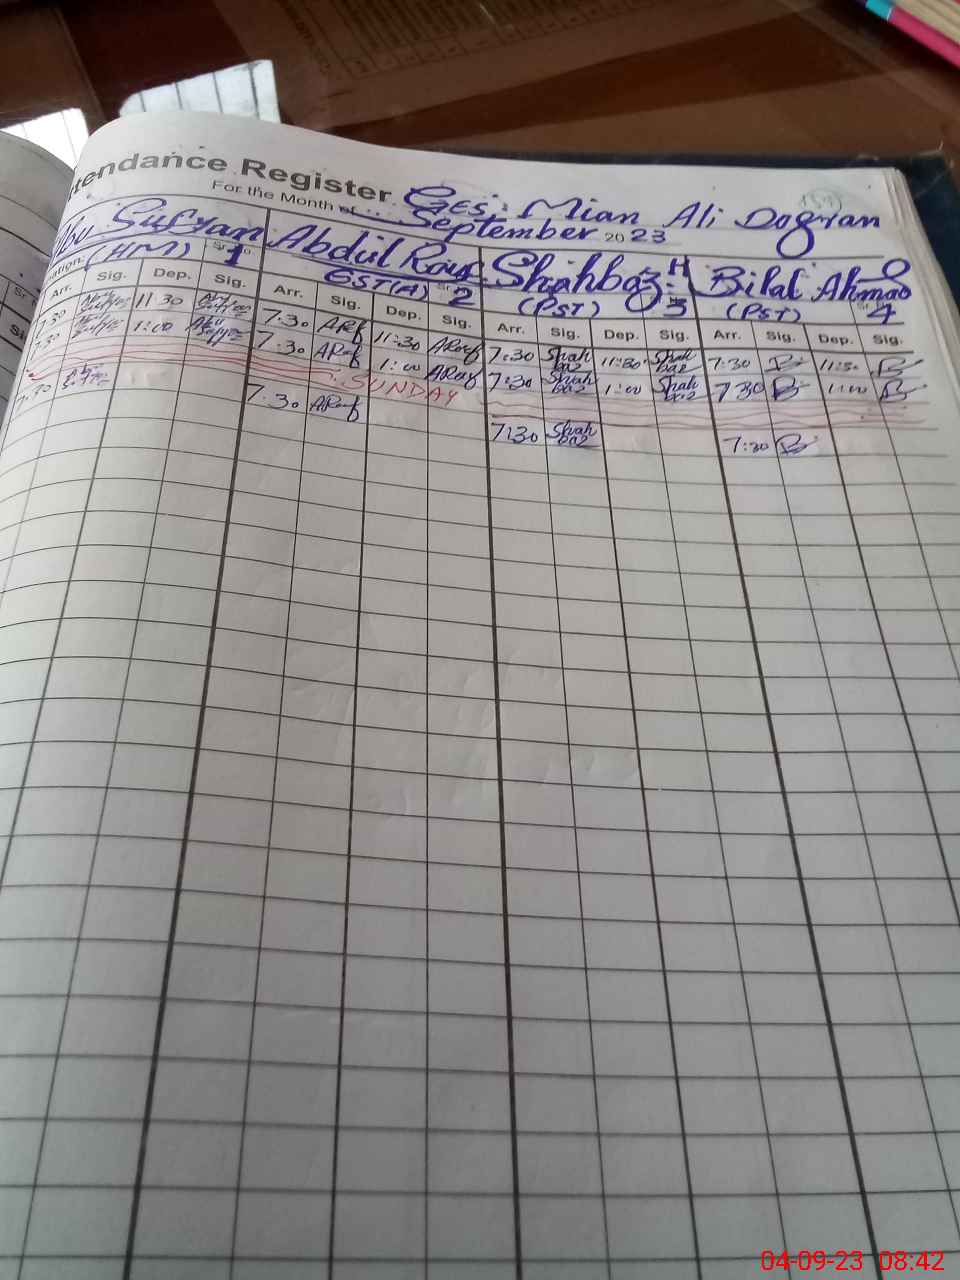 tendance Register GES: Mian Ali Dogran
For the Month of September 2023
Abu Sufyan Abdul Rauf Shahbaz H Bilal Ahmad
(HM) Sr 1 GST(A) Sr 2 (PST) 3 (PST) Sr 4
Arr. Sig. Dep. Sig. Arr. Sig. Dep. Sig. Arr. Sig. Dep. Sig. Arr. Sig. Dep. Sig.
7:30 Abu Sufyan 11:30 Abu Sufyan 7:30 ARf 11:30 ARauf 7:30 Shahbaz 11:30 Shahbaz 7:30 B 11:30 B
7:30 Abu Sufyan 1:00 Abu Sufyan 7:30 ARaf 1:00 ARauf 7:30 Shahbaz 1:00 Shahbaz 7:30 B 1:00 B
SUNDAY
7:30 Abu Sufyan 7:30 ARauf 7:30 Shahbaz 7:30 B
04-09-23 08:42